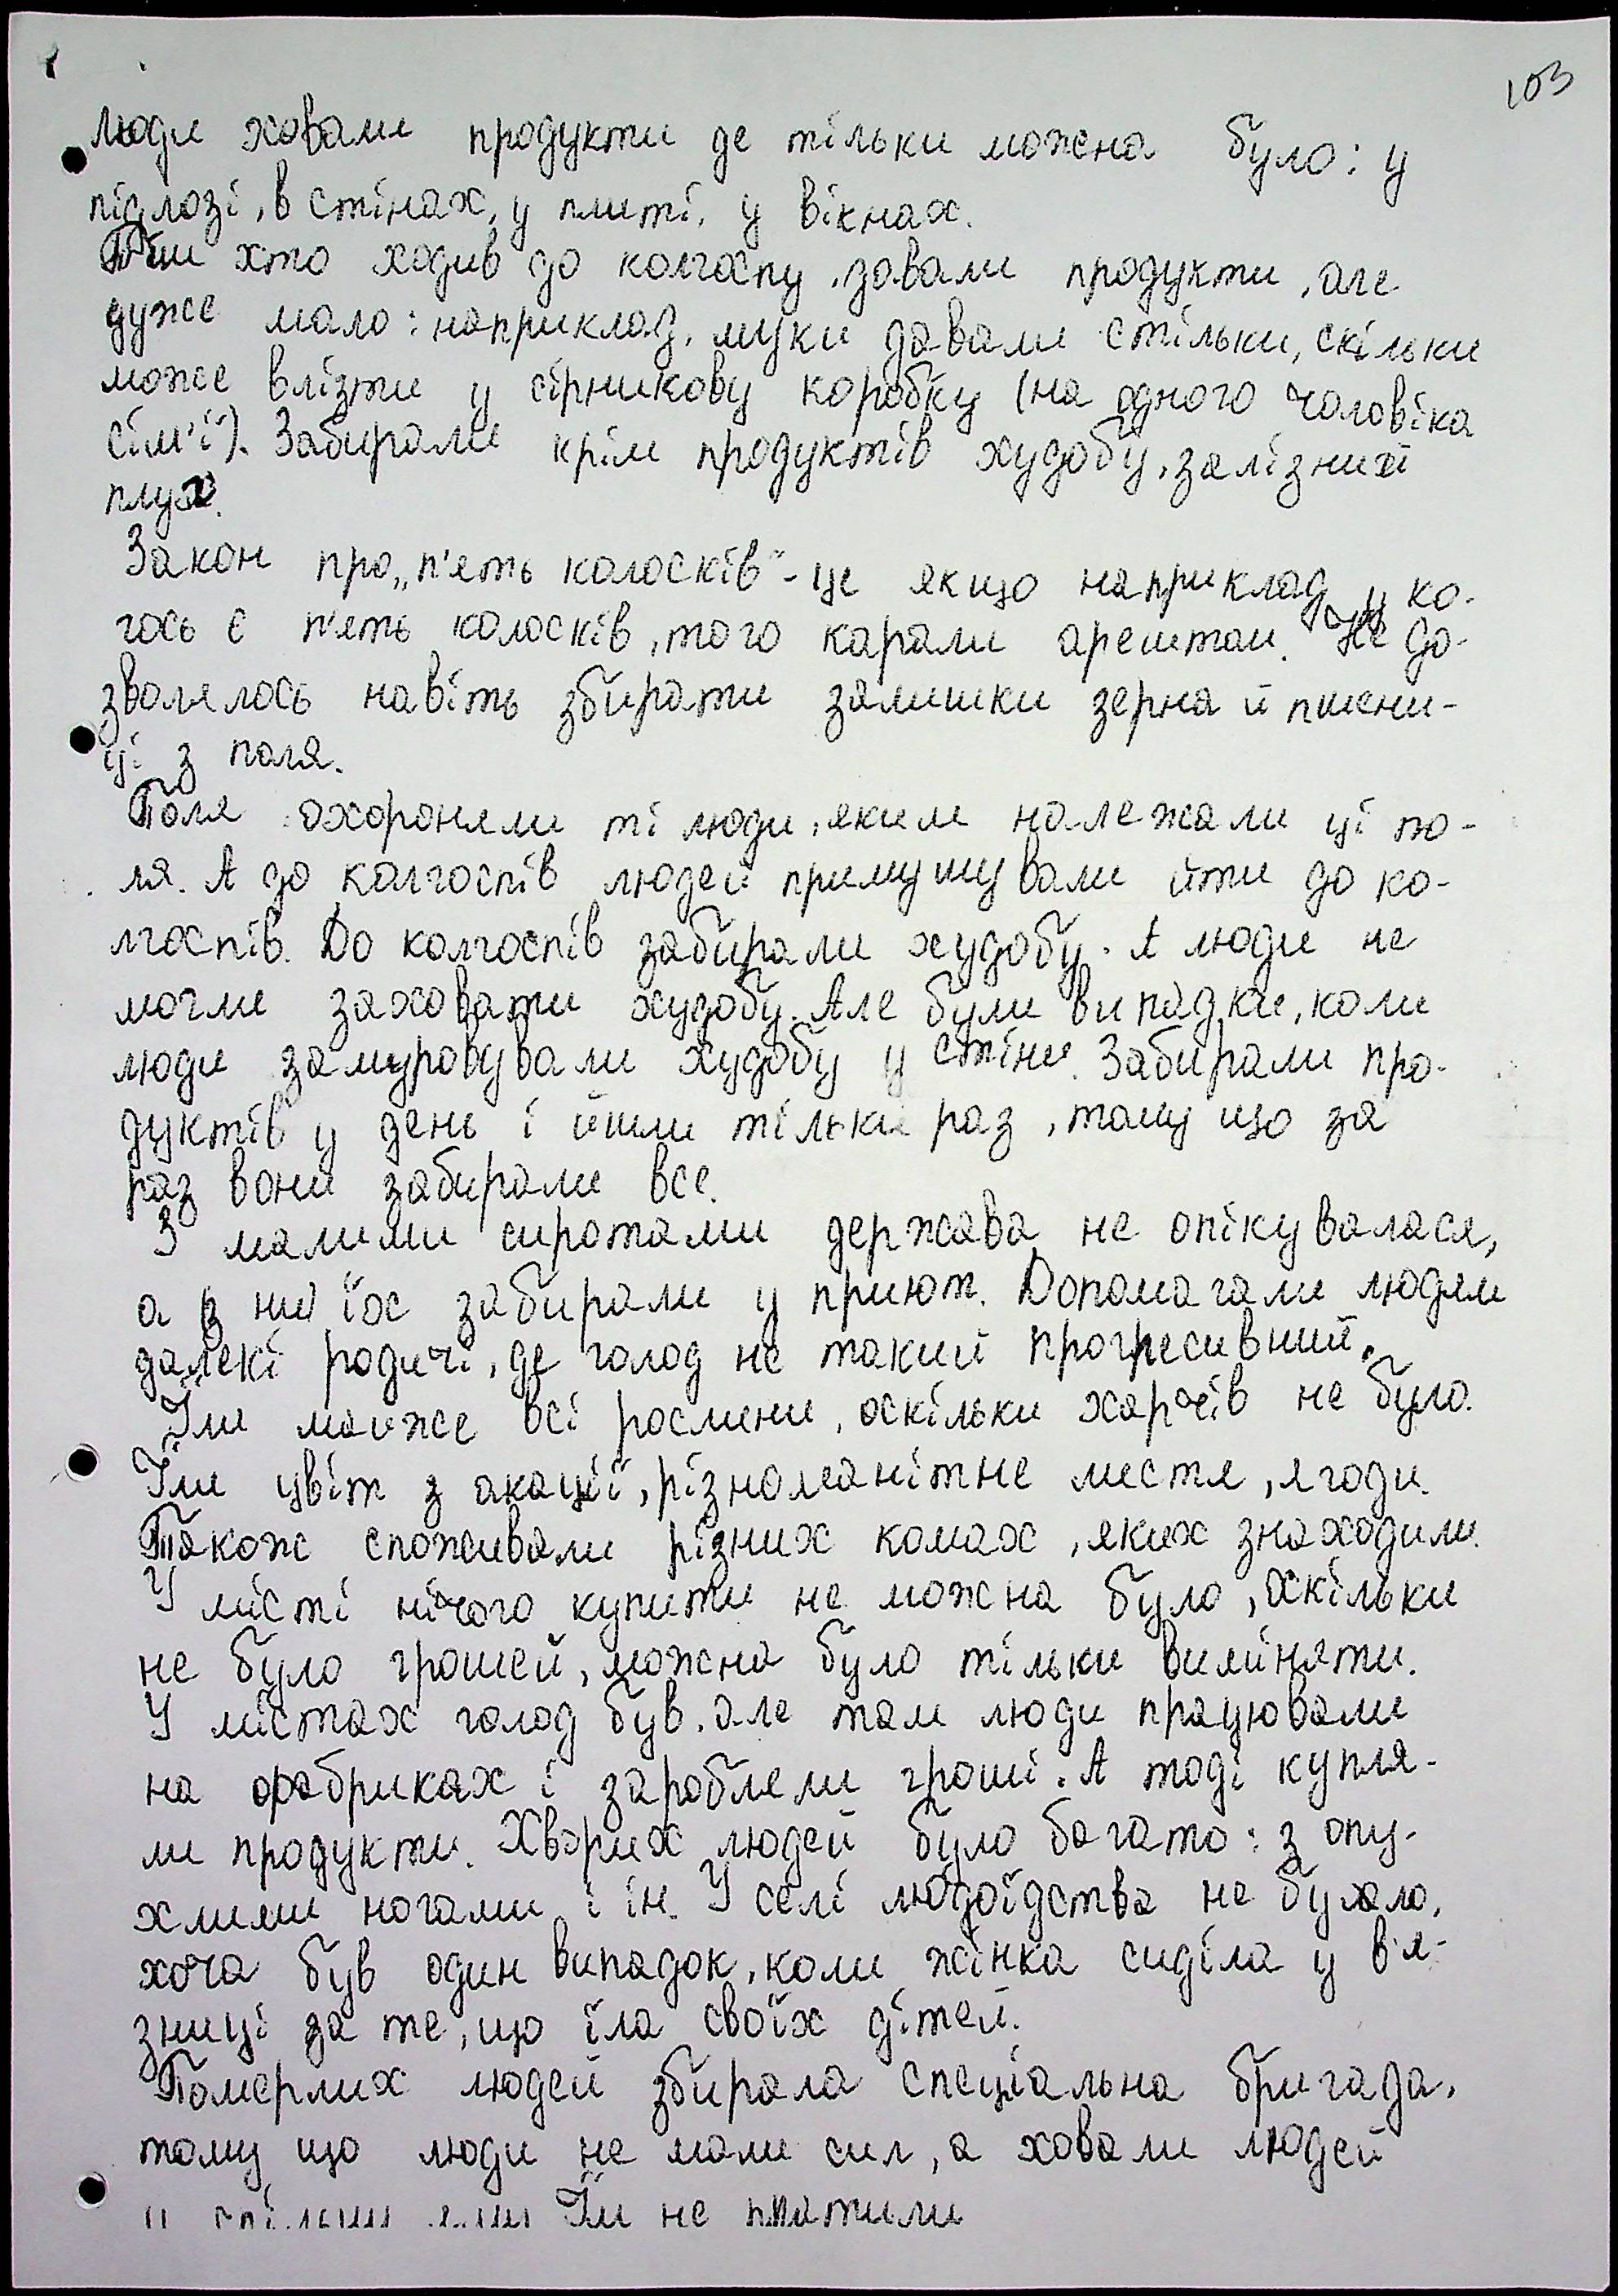 103
Люди ховали продукти де тільки можна було: у
підлозі, в стінах, у плиті, у вікнах.
Тим хто ходив до колгоспу, давали продукти, але
дуже мало: наприклад, муки давали стільки, скільки
може влізти у сірникову коробку (на одного чоловіка
сім'ї). Забирали крім продуктів худобу, залізний
плуг.
Закон про „п'ять колосків" - це якщо наприклад у ко-
гось є п'ять колосків, того карали арештом. Не до-
зволялось навіть збирати залишки зерна й пшени-
ці з поля.
Поля охороняли ті люди, яким належали ці по-
ля. А до колгоспів людей примушували йти до ко-
лгоспів. До колгоспів забирали худобу. А люди не
могли заховати худобу. Але були випадки, коли
люди замуровували худобу у стіни. Забирали про-
дуктів у день і йшли тільки раз, тому що за
раз вони забирали все.
З малими сиротами держава не опікувалася,
а їх забирали у приют. Допомагали людям
далекі родичі, де голод не такий прогресивний.
Їли майже всі рослини, оскільки харчів не було.
Їли цвіт з акації, різноманітне листя, ягоди.
Також споживали різних комах, яких знаходили.
У місті нічого купити не можна було, оскільки
не було грошей, можна було тільки виміняти.
У містах голод був, але там люди працювали
на фабриках і заробляли гроші. А тоді купля-
ли продукти. Хворих людей було багато: з опу-
хлими ногами і ін. У селі людоїдства не бувало,
хоча був один випадок, коли жінка сиділа у в'я-
зниці за те, що їла своїх дітей.
Померлих людей збирала спеціальна бригада,
тому що люди не мали сил, а ховали людей
у спільну яму. Їм не платили